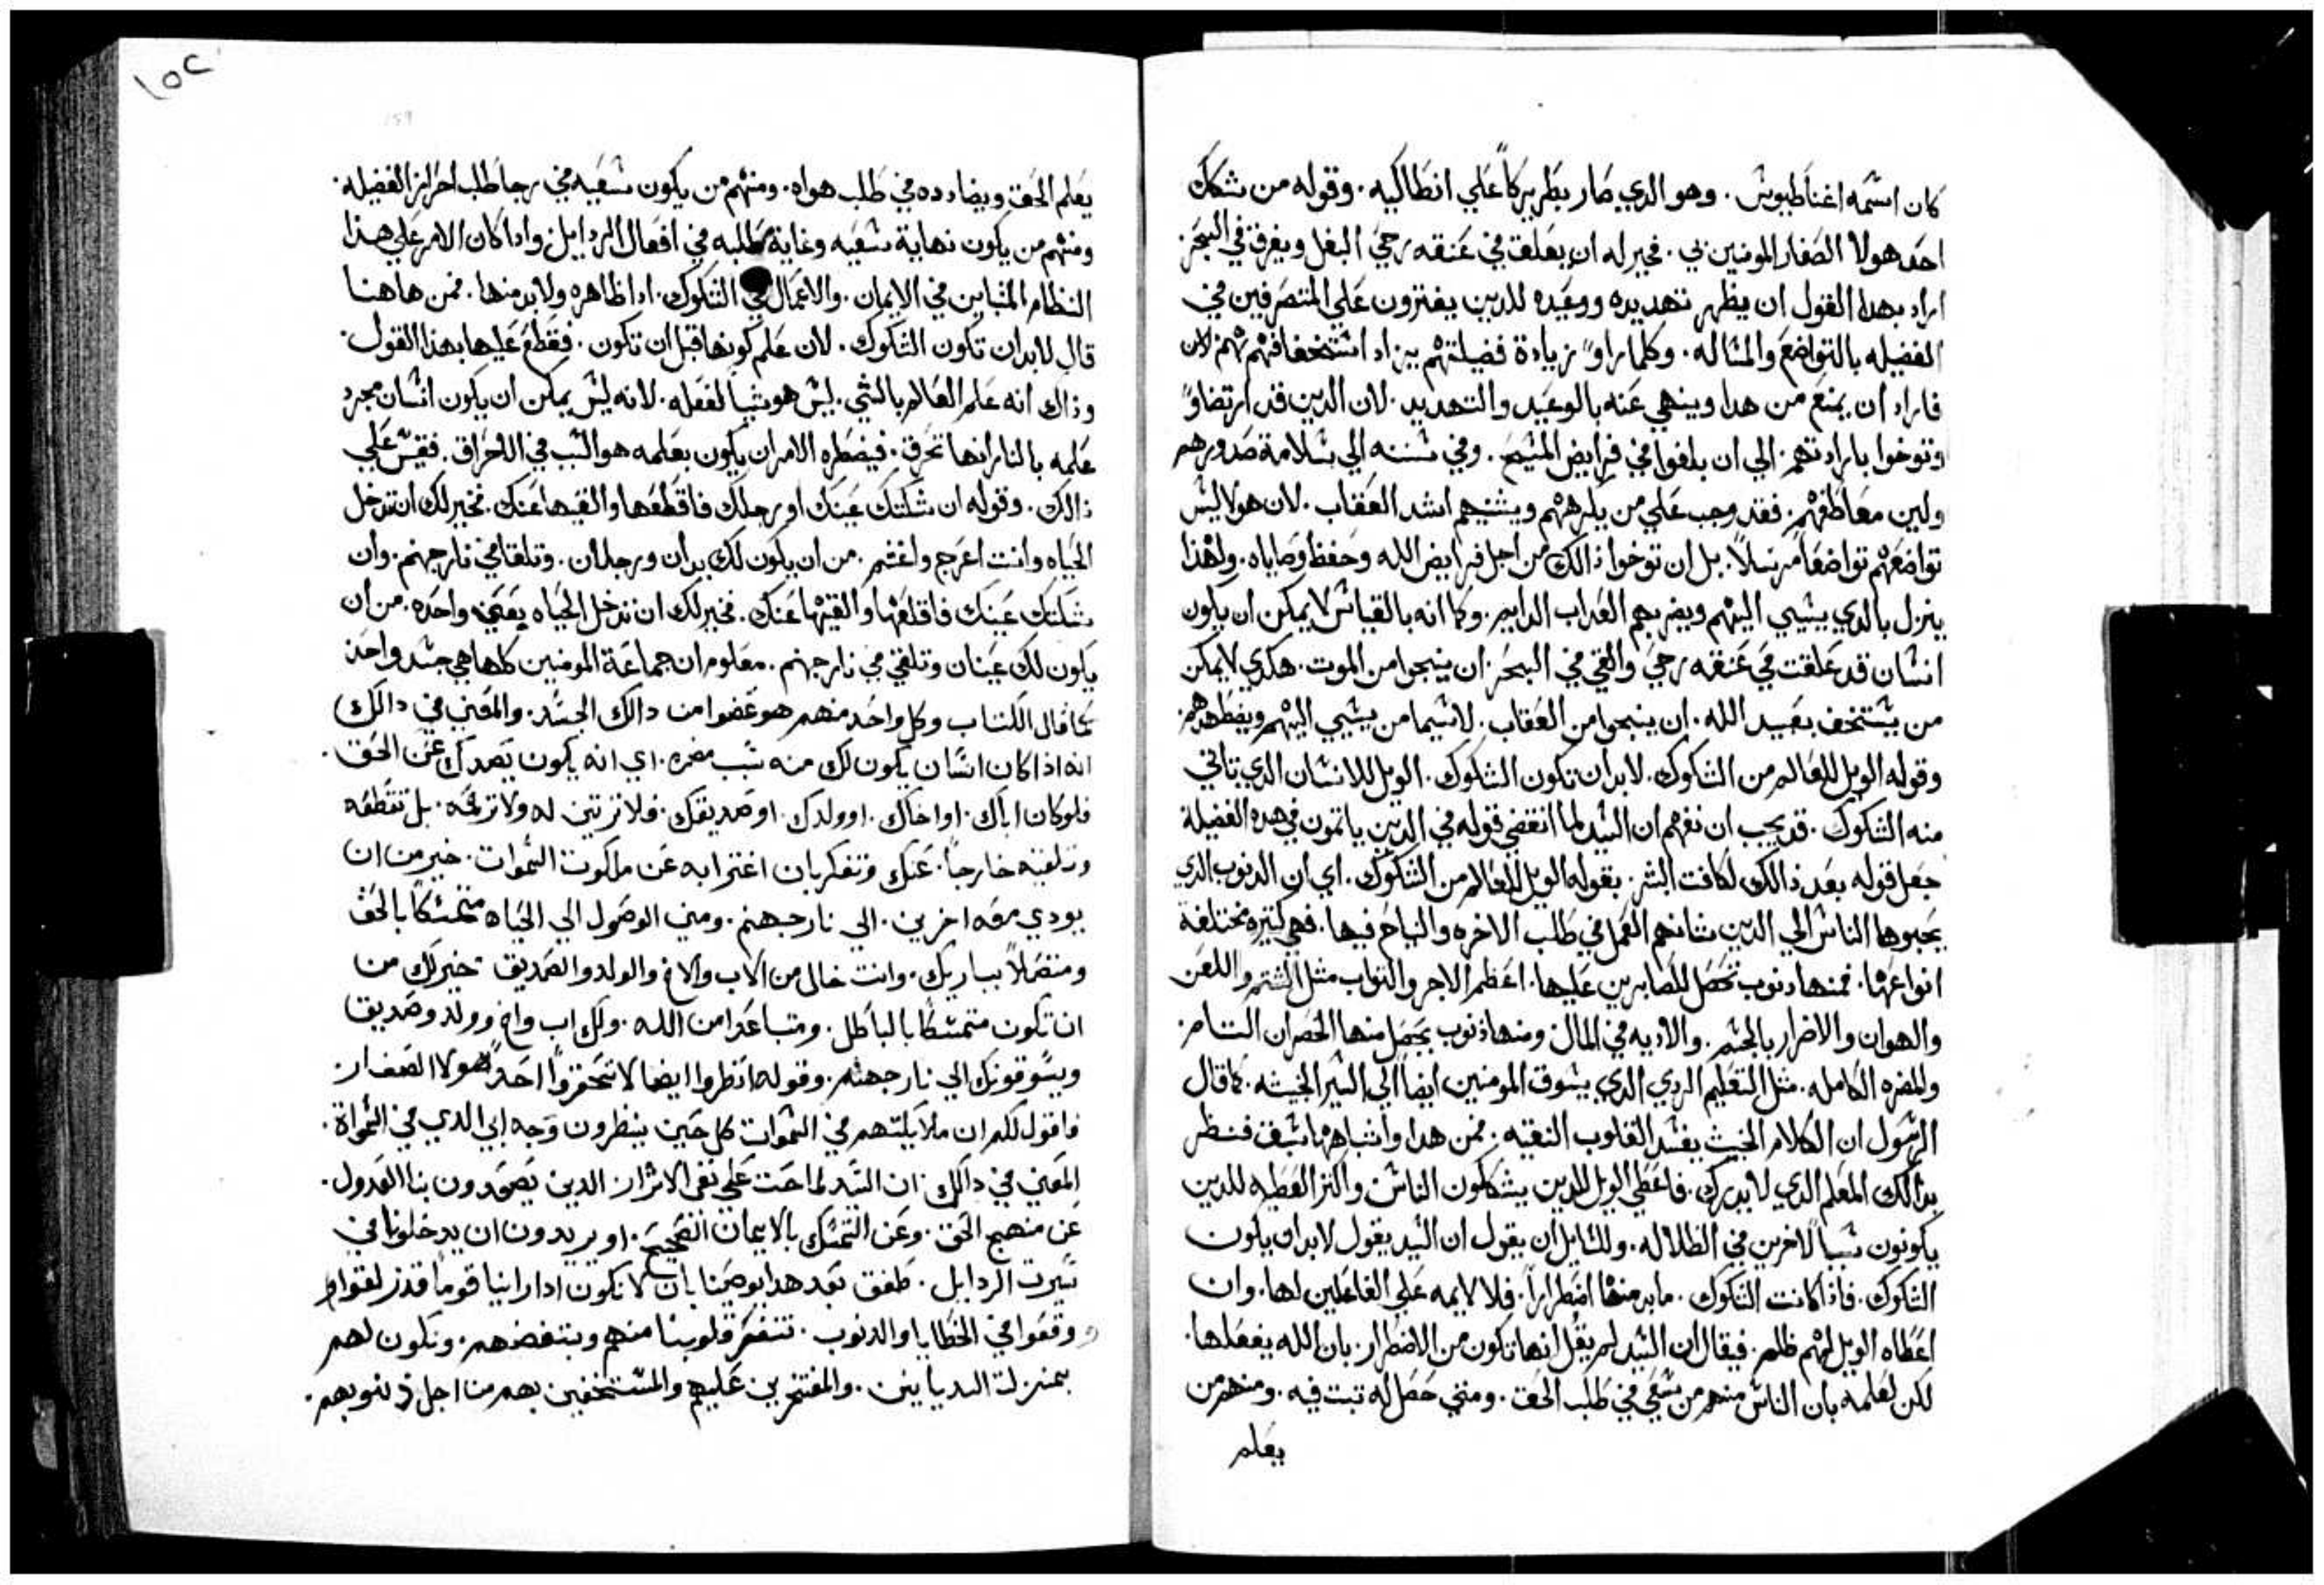 كان اسمه اغناطيوس . وهو الدي صار بطريركاً علي انطاكيه . وقوله من شكك
احد هولا الصغار المومنين بي . فخير له ان يعلق في عنقه رحي البغل ويغرق في البحر .
اراد بهدا القول ان يظهر تهديده ووعيده للدين يفترون علي المتصرفين في
الفضيله بالتواضع والمثاله . وكلما راوا زيادة فضيلتهم يزاد استخفافهم بهم لان
فاراد ان يمنع من هدا وينهي عنه بالوعيد والتهديد . لان الدين قد ارتضاوا
وتوخوا بارادتهم . الي ان بلغوا في فرايض المسيح . وفي سننه الي سلامة صدورهم
ولين معاطفهم . فقد وجب علي من يكرههم ويشنيهم اشد العقاب . لان هولا ليس
تواضعهم تواضعاً مرسلاً . بل ان توخوا دالك من اجل فرايض الله وحفظ وصاياه . ولهذا
ينزل بالدي يسيي اليهم ويضر بهم العداب الدايم . وكما انه بالقياس لا يمكن ان يكون
انسان قد علقت في عنقه رحي والقي في البحر . ان ينجوا من الموت . هكدي لا يمكن
من يستخف بعبيد الله . ان ينجوا من العقاب . لاسيما من يسيي اليهم ويضطهدهم .
وقوله الويل للعالم من الشكوك . لابد ان تكون الشكوك . الويل للانسان الدي تاتي
منه الشكوك . قد يجب ان نفهم ان السيد لما انقضي قوله في الدين ياتمون في هده الفضيلة
جعل قوله بعد دالك لكافت البشر . بقوله الويل للعالم من الشكوك . اي ان الدنوب الدي
يجبوها الناس الي الدين شانهم العمل في طلب الاخره والنياح فيها . فهي كتيره مختلفة
انواعها . فمنها دنوب تحصل للصابرين عليها . اعظم الاجر والتواب مثل الشتم واللعن
والهوان والاضرار بالجسم . والاديه في المال . ومنها ذنوب يحصل منها الخسران التام .
والمضره الكامله . مثل التعليم الردي الدي يسوق المومنين ايضاً الي السير الخبيثه . كما قال
الرسول ان الكلام الخبيث يفسد القلوب النقيه . فمن هدا واشباهها شف فنظر
بدالك المعلم الدي لا يدرك . فاعطي الويل للدين يشككون الناس واكثر العطيه للدين
يكونون سبباً لاخرين في الظلاله . وللسايل ان يقول ان السيد يقول لابد ان يكون
الشكوك . فاذا كانت الشكوك . مابد منها اضطراراً . فلا لايمه علي الفاعلين لها . وان
اعطاه الويل لهم ظلم . فيقال ان السيد لم يقل انها تكون من الاضطرار . بان الله يفعلها .
لكن لعلمه بان الناس منهم من سعي في طلب الحق . ومتي حصل له تبت فيه . ومنهم من
يعلم
١٥٢
يعلم الحق ويضادده في طلب هواه . ومنهم من يكون سعيه في رجا طلب احراز الفضيله .
ومنهم من يكون نهاية سعيه وغاية مطلبه في افعال الردايل . واذا كان الامر علي هذا
النظام المتباين في الايمان . والاعمال في الشكوك . اداً ظاهره ولابد منها . فمن هاهنا
قال لابد ان تكون الشكوك . لان علم كونها قبل ان تكون . فقطع عليها بهذا القول .
وذاك انه علم العالم بالشي . ليس هو سبباً لفعله . لانه ليس يمكن ان يكون انسان مجرد
علمه بالنار انها تحرق . فيضطره الامر ان يكون بعلمه هو السبب في الاحراق . فقيس علي
ذالك . وقوله ان شككتك عينك او رجلك فاقطعها والقيها عنك . فخير لك ان تدخل
الحياه وانت اعرج واعسم . من ان يكون لك يدان ورجلان . وتلقا في نار جهنم . وان
شككتك عينك فاقلعها والقيها عنك . فخير لك ان تدخل الحياه بعين واحده . من ان
يكون لك عينان وتلقي في نار جهنم . معلوم ان جماعة المومنين كلها هي جسد واحد
كما قال الكتاب وكل واحد منهم هو عضوا من دالك الجسد . والمعني في دالك
انه اذا كان انسان يكون لك منه سبب مضره . اي انه يكون يصدك عن الحق .
فلو كان اباك . او اخاك . او ولدك . او صديقك . فلا ترتي له ولا ترحمه . بل تقطعه
وتلقيه خارجاً . عنك وتفكر بان اغترابه عن ملكوت السموات . خير من ان
يودي معه اخرين . الي نار جهنم . ومتي الوصول الي الحياه متمسكاً بالحق
ومتصلاً بباريك . وانت خالي من الاب والاخ والولد والصديق . خير لك من
ان تكون متمسكاً بالباطل . ومتباعداً من الله . ولك اب واخ وولد وصديق
ويسوقونك الي نار جهنم . وقوله انظروا ايضاً لا تحقروا احد هولا الصغار
فاقول لكم ان ملايكتهم في السموات كل حين ينظرون وجه ابي الدي في السمواة .
المعني في دالك . ان السيد لما حت علي نفي الاشرار الدين يصدون بنا العدول .
عن منهج الحق . وعن التمسك بالايمان الصحيح . او يريدون ان يدخلونا في
سيرت الردايل . طفق بعد هدا يوصينا بان لا نكون ادا راينا قوماً قد زلقوا و
ووقعوا في الخطايا والدنوب . تتنفر قلوبنا منهم وبتبغضهم . ونكون لهم
بمنزلة الديانين . والمفتخرين عليهم والمستخفين بهم من اجل ذنوبهم .